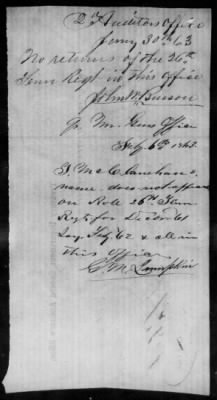 2d Auditors Office
Jany 30th 63
No returns of the 26th
Tenn Regt in this Office
John W.
Qr Mr Genl Office
Feby 6th 1863
name does not appear
on Rolls 26th Tenn
Regt for Dec 61
Jany Feby 62 & all in
this Office
C M Lumpkin